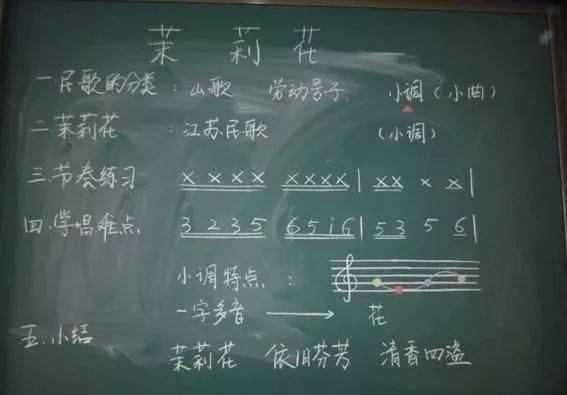 茉 莉 花
一.民歌的分类：山歌 劳动号子、 小调（小曲）
二.茉莉花 ：江苏民歌 （小调）
三.节奏练习 X X X X X X X X | X X X X |
四.学唱难点 3 2 3 5 6 5 i 6 | 5 3 5 6 |
小调特点：
一字多音 → 花
五.小结
茉莉花 依旧芬芳 清香四溢